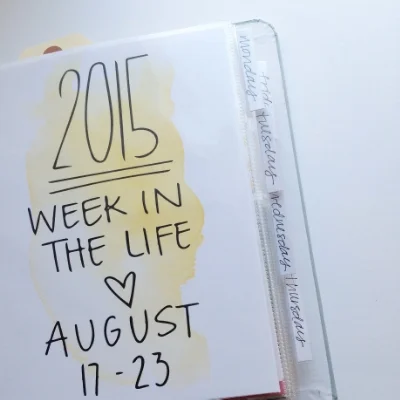 2015
WEEK IN
THE LIFE
AUGUST
17-23
monday
tuesday
wednesday
thursday